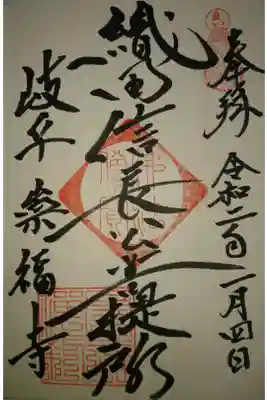 奉拝 令和二年一月四日
織田信長公菩提所
岐阜 崇福寺